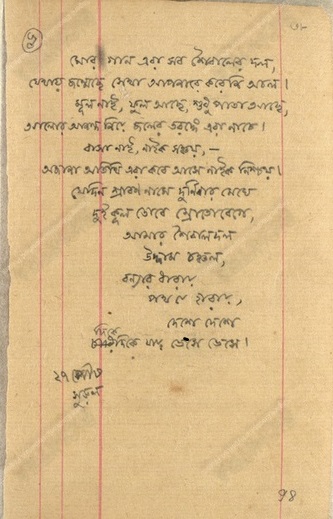 ৬
মোর গান এরা সব শৈবালের দল,
যেথায় জন্মেছে সেথা আপনারে করেনি অচল।
মূল নাই, ফুল আছে, শুধু পাতা আছে,
আলোর আনন্দ নিয়ে জলের তরঙ্গে এরা নাচে।
বাসা নাই, নাইক সঞ্চয়, —
অজানা অতিথি এরা কবে আসে নাইক নিশ্চয়।
যেদিন শ্রাবণ নামে দুর্নিবার মেঘে
দুই কূল ডোবে স্রোতোবেগে,
আমার শৈবালদল
উদ্দাম চঞ্চল,
বন্যার ধারায়
পথ যে হারায়,
দেশে দেশে
দিকে দিকে যায় ভেসে ভেসে।
২৭ পৌষ
সুরুল